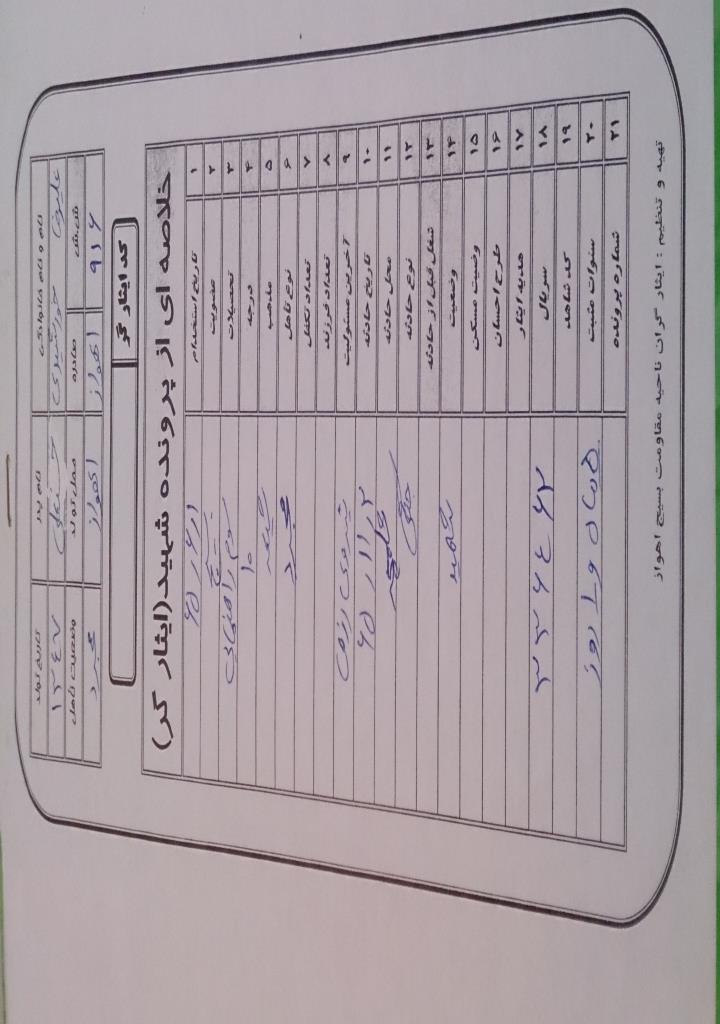 نام و نام خانوادگی نام پدر تاریخ تولد
علیرضا خورشیدی ۱۳۴۷
ش.ش صادره محل تولد وضعیت تاهل
۹۱۶ اهواز اهواز مجرد
کد ایثار گر
خلاصه ای از پرونده شهید(ایثار گر)
۱ تاریخ استخدام ۶۵/۶/۱
۲ عضویت بسیج
۳ تحصیلات سوم راهنمایی
۴ درجه ۱۰
۵ مذهب شیعه
۶ نوع تاهل مجرد
۷ تعداد تکفل
۸ تعداد فرزند
۹ آخرین مسئولیت نیروی رزمی
۱۰ تاریخ حادثه ۶۵/۱۱/۲
۱۱ محل حادثه شلمچه
۱۲ نوع حادثه جنگی
۱۳ شغل قبل از حادثه
۱۴ وضعیت شهید
۱۵ وضیت مسکن
۱۶ طرح احسان
۱۷ هدیه ایثار
۱۸ سریال ۳۳۶۴۶۲
۱۹ کد شاهد
۲۰ سنوات مثبت ۵ماه و۱ روز
۲۱ شماره پرونده
تهیه و تنظیم : ایثار گران ناحیه مقاومت بسیج اهواز